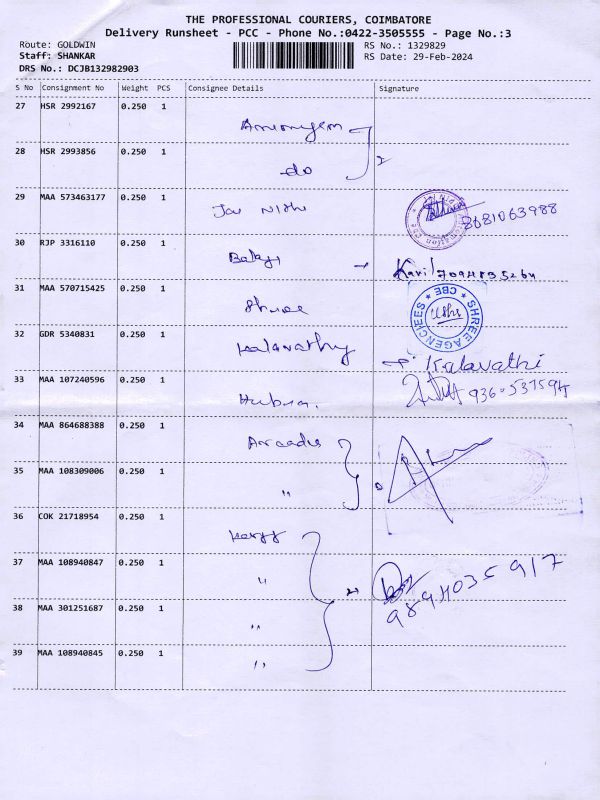 THE PROFESSIONAL COURIERS, COIMBATORE
Delivery Runsheet - PCC - Phone No.:0422-3505555 - Page No.:3
Route: GOLDWIN
RS No.: 1329829
Staff: SHANKAR
RS Date: 29-Feb-2024
DRS No.: DCJB132982903
S No Consignment No Weight PCS Consignee Details Signature
27 HSR 2992167 0.250 1
28 HSR 2993856 0.250 1 do
29 MAA 573463177 0.250 1 8681063988
30 RJP 3316110 0.250 1
31 MAA 570715425 0.250 1 Shree SHREE AGENCIEES ★ CBE ★
32 GDR 5340831 0.250 1 Kalavathy Kalavathi
33 MAA 107240596 0.250 1
34 MAA 864688388 0.250 1 Arcadis
35 MAA 108309006 0.250 1 "
36 COK 21718954 0.250 1
37 MAA 108940847 0.250 1 " 9894035917
38 MAA 301251687 0.250 1 "
39 MAA 108940845 0.250 1 "